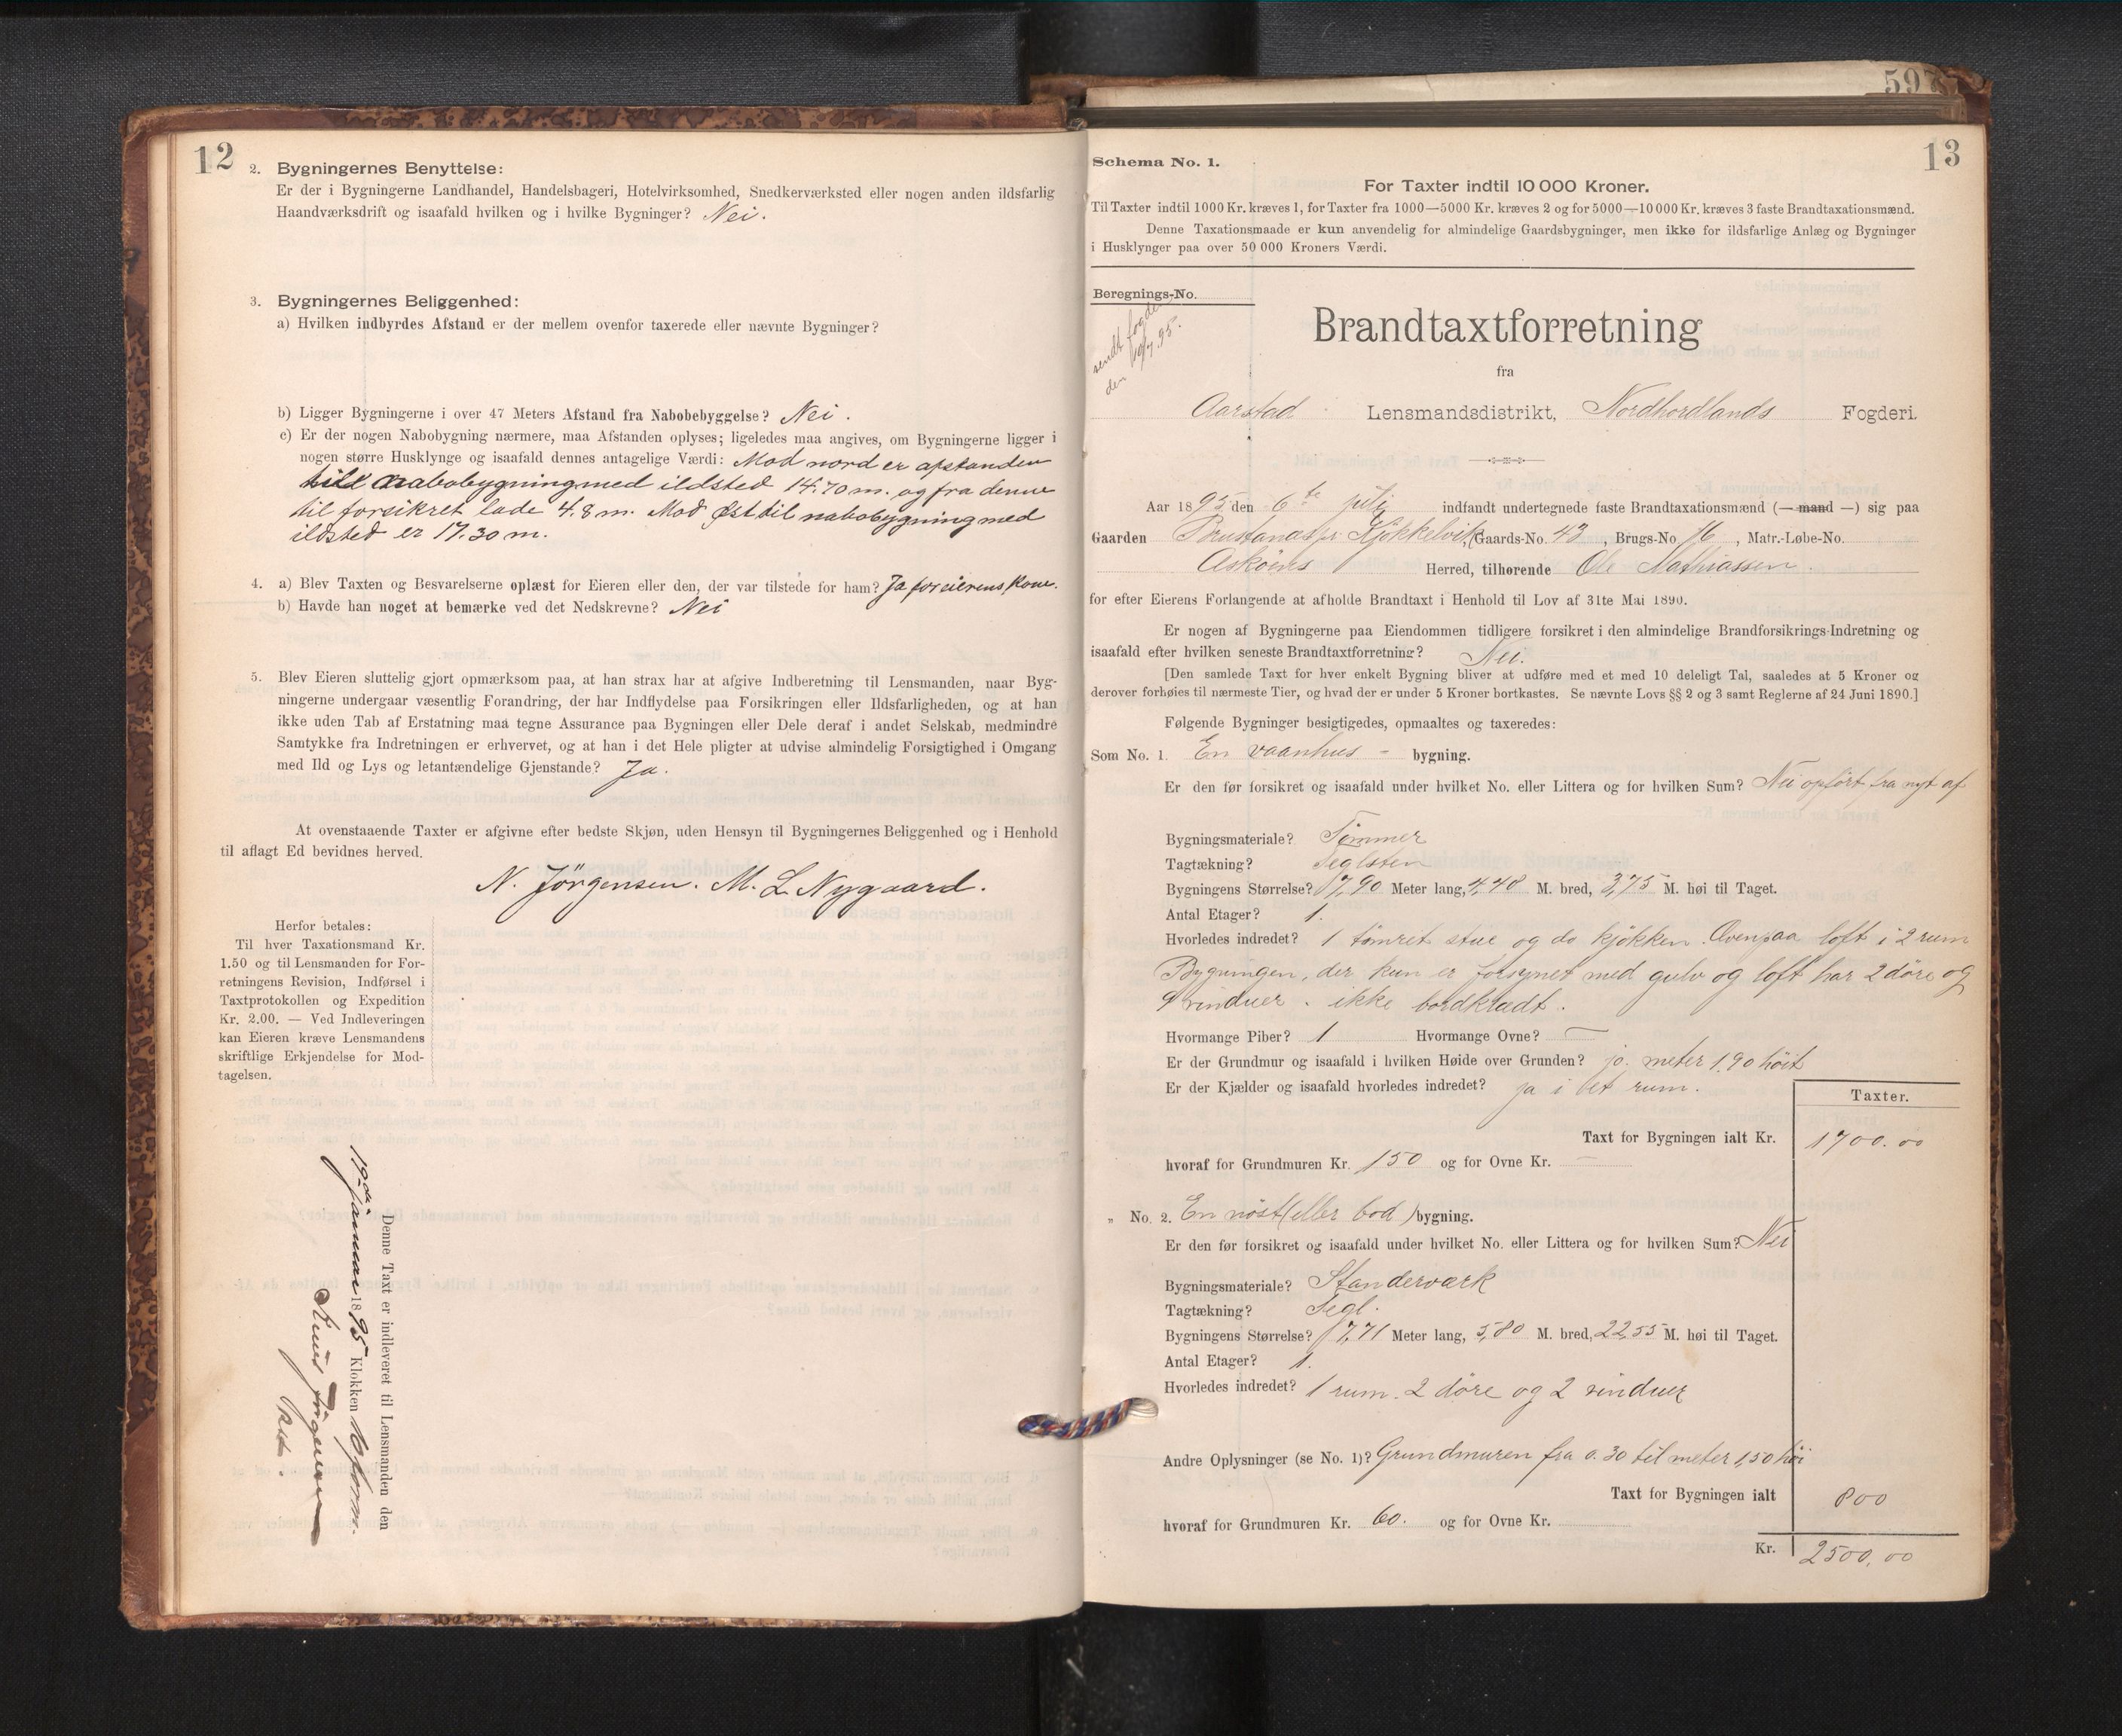 12
2. Bygningernes Benyttelse:
Er der i Bygningerne Landhandel, Handelsbageri, Hotelvirksomhed, Snedkerværksted eller nogen anden ildsfarlig
Haandværksdrift og isaafald hvilken og i hvilke Bygninger? Nei.
3. Bygningernes Beliggenhed:
a) Hvilken indbyrdes Afstand er der mellem ovenfor taxerede eller nævnte Bygninger?
b) Ligger Bygningerne i over 47 Meters Afstand fra Nabobebyggelse? Nei.
c) Er der nogen Nabobygning nærmere, maa Afstanden oplyses; ligeledes maa angives, om Bygningerne ligger i
nogen større Husklynge og isaafald dennes antagelige Værdi: Mod nord er afstanden
till nabobygning med ildsted 14.70 m. og fra denne
til forsikret lade 4.8 m. Mod Øst til nabobygning med
ildsted er 17.30 m.
4. a) Blev Taxten og Besvarelserne oplæst for Eieren eller den, der var tilstede for ham? Ja for eierens kone.
b) Havde han noget at bemærke ved det Nedskrevne? Nei
5. Blev Eieren sluttelig gjort opmærksom paa, at han strax har at afgive Indberetning til Lensmanden, naar Byg-
ningerne undergaar væsentlig Forandring, der har Indflydelse paa Forsikringen eller Ildsfarligheden, og at han
ikke uden Tab af Erstatning maa tegne Assurance paa Bygningen eller Dele deraf i andet Selskab, medmindre
Samtykke fra Indretningen er erhvervet, og at han i det Hele pligter at udvise almindelig Forsigtighed i Omgang
med Ild og Lys og letantændelige Gjenstande? Ja.
At ovenstaaende Taxter er afgivne efter bedste Skjøn, uden Hensyn til Bygningernes Beliggenhed og i Henhold
til aflagt Ed bevidnes herved.
N. Jörgensen. M. L. Nygaard.
Herfor betales:
Til hver Taxationsmand Kr.
1.50 og til Lensmanden for For-
retningens Revision, Indførsel i
Taxtprotokollen og Expedition
Kr. 2.00. — Ved Indleveringen
kan Eieren kræve Lensmandens
skriftlige Erkjendelse for Mod-
tagelsen.
Denne Taxt er indleveret til Lensmanden den
19de januar 1895 Klokken 10 form.
Knud Jörgensen
597
13
Schema No. 1.
For Taxter indtil 10 000 Kroner.
Til Taxter indtil 1000 Kr. kræves 1, for Taxter fra 1000—5000 Kr. kræves 2 og for 5000—10 000 Kr. kræves 3 faste Brandtaxationsmænd.
Denne Taxationsmaade er kun anvendelig for almindelige Gaardsbygninger, men ikke for ildsfarlige Anlæg og Bygninger
i Husklynger paa over 50 000 Kroners Værdi.
Beregnings-No.
sendt fogden
den 19/7 95.
Brandtaxtforretning
fra
Aarstad Lensmandsdistrikt, Nordhordlands Fogderi.
Aar 1895 den 6te juli indfandt undertegnede faste Brandtaxationsmænd (— mand —) sig paa
Gaarden Kjøkkelvik, Gaards-No. 43, Brugs-No. 16, Matr.-Løbe-No.
Askøens Herred, tilhørende Ole Mathiassen.
for efter Eierens Forlangende at afholde Brandtaxt i Henhold til Lov af 31te Mai 1890.
Er nogen af Bygningerne paa Eiendommen tidligere forsikret i den almindelige Brandforsikrings-Indretning og
isaafald efter hvilken seneste Brandtaxtforretning? Nei.
[Den samlede Taxt for hver enkelt Bygning bliver at udføre med et med 10 deleligt Tal, saaledes at 5 Kroner og
derover forhøies til nærmeste Tier, og hvad der er under 5 Kroner bortkastes. Se nævnte Lovs §§ 2 og 3 samt Reglerne af 24 Juni 1890.]
Følgende Bygninger besigtigedes, opmaaltes og taxeredes:
Som No. 1. En vaanhus - bygning.
Er den før forsikret og isaafald under hvilket No. eller Littera og for hvilken Sum? Nei opført fra nyt af
Bygningsmateriale? Tømmer
Tagtækning? Teglsten
Bygningens Størrelse? 7,90 Meter lang, 4,48 M. bred, 3,75 M. høi til Taget.
Antal Etager? 1.
Hvorledes indredet? 1 tømret stue og do kjøkken. Ovenpaa loft i 2 rum
Bygningen, der kun er forsynet med gulv og loft har 2 døre og
9 vinduer. ikke bordklædt.
Hvormange Piber? 1 Hvormange Ovne? —
Er der Grundmur og isaafald i hvilken Høide over Grunden? jo. meter 1.90 høit
Er der Kjælder og isaafald hvorledes indredet? ja i et rum.
Taxter.
Taxt for Bygningen ialt Kr. 1700.00
hvoraf for Grundmuren Kr. 150 og for Ovne Kr. —
„ No. 2. En nøst (eller bod) bygning.
Er den før forsikret og isaafald under hvilket No. eller Littera og for hvilken Sum? Nei
Bygningsmateriale? Standerværk
Tagtækning? Tegl.
Bygningens Størrelse? 7,71 Meter lang, 5,80 M. bred, 2255 M. høi til Taget.
Antal Etager? 1.
Hvorledes indredet? 1 rum. 2 døre og 2 vinduer
Andre Oplysninger (se No. 1)? Grundmuren fra 0.30 til meter 1,50 høi
Taxt for Bygningen ialt 800
hvoraf for Grundmuren Kr. 60. og for Ovne Kr.
Kr. 2500.00